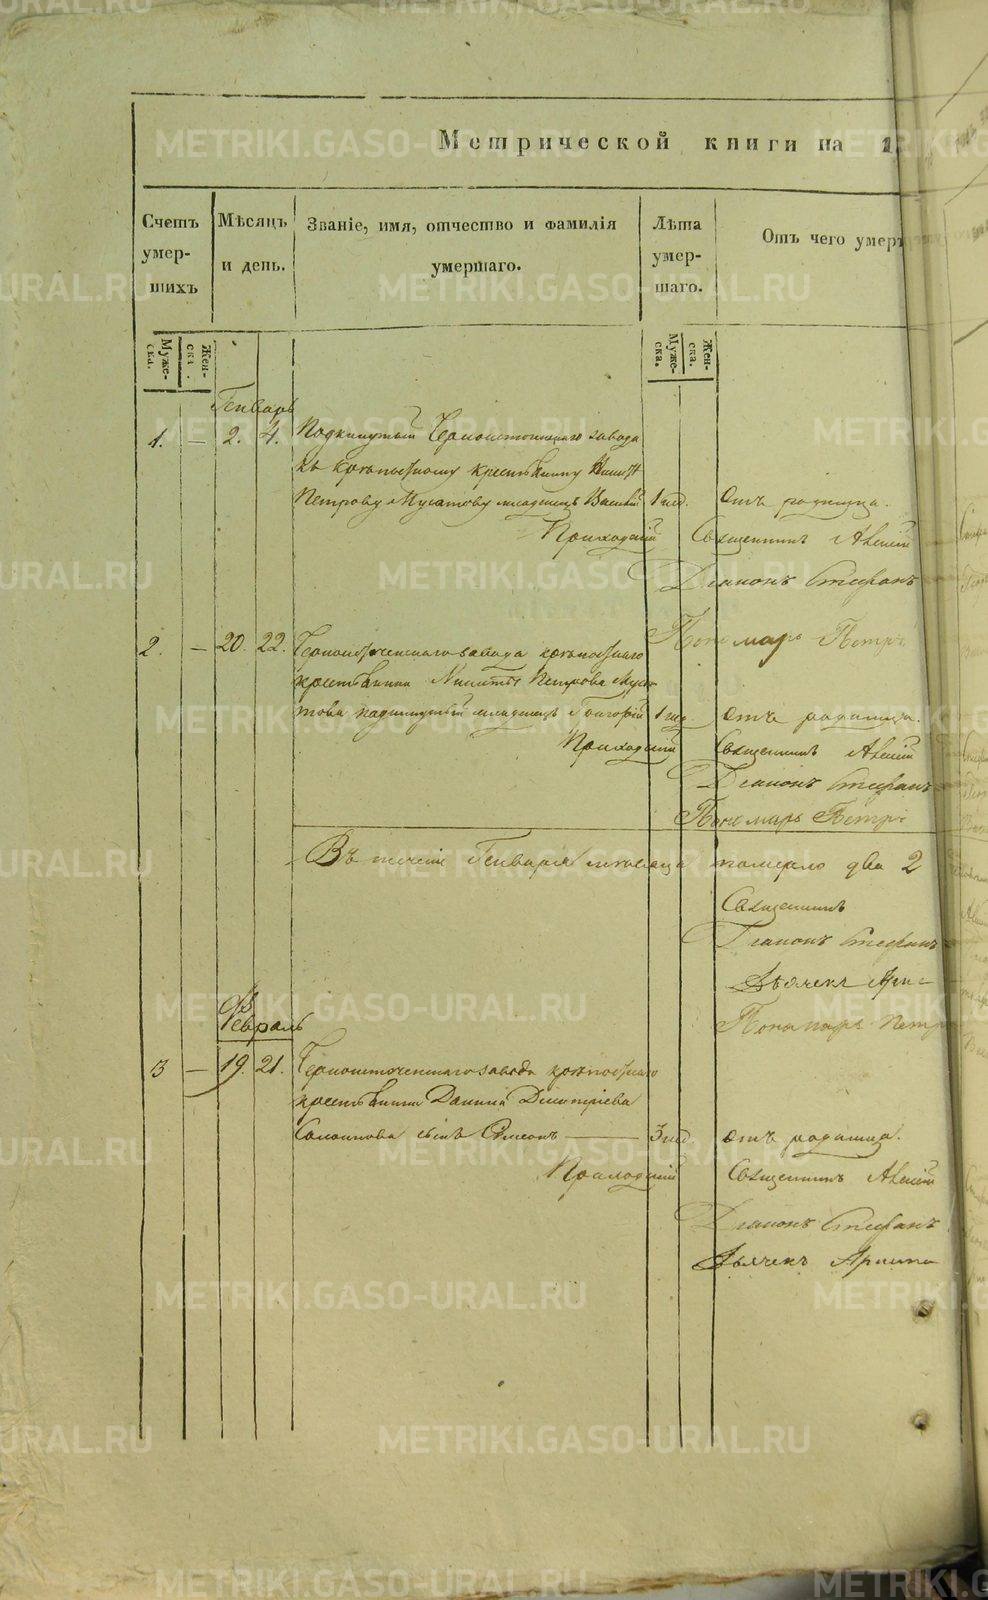 Метрической книги на 1
Счетъ умер- шихъ
Мѣсяцъ и день.
Званіе, имя, отчество и фамилія умершаго.
Лѣта умер- шаго.
Отъ чего умер
Муже- ска.
Жен- ска.
Муже- ска.
Жен- ска.
Генварь
1. — 2. 4. Подкинутый Черноисточинскаго завода
къ крѣпостному крестьянину Никит
Петрову Мусатову младенецъ Василий 1 нед. Отъ родимца.
Приходский Священникъ Алексий
Диаконъ Стефанъ
Пономарь Петръ
2. — 20. 22. Черноисточенскаго завода крѣпостнаго
крестьянина Никиты Петрова Муса-
това подкинутый младенецъ Григорий 1 нед. Отъ родимца.
Приходский Священникъ Алексий
Диаконъ Стефанъ
Пономарь Петръ
Въ течение Генваря месяца померло два 2
Священникъ
Диаконъ Стефанъ
Дьячекъ
Пономарь Петръ
Февраль
3 — 19. 21. Черноисточенскаго завода крѣпостнаго
крестьянина Данила Димитриева
сынъ Симеонъ — 3 нед. отъ родимца.
Приходский Священникъ Алексий
Диаконъ Стефанъ
Дьячекъ
METRIKI.GASO-URAL.RU